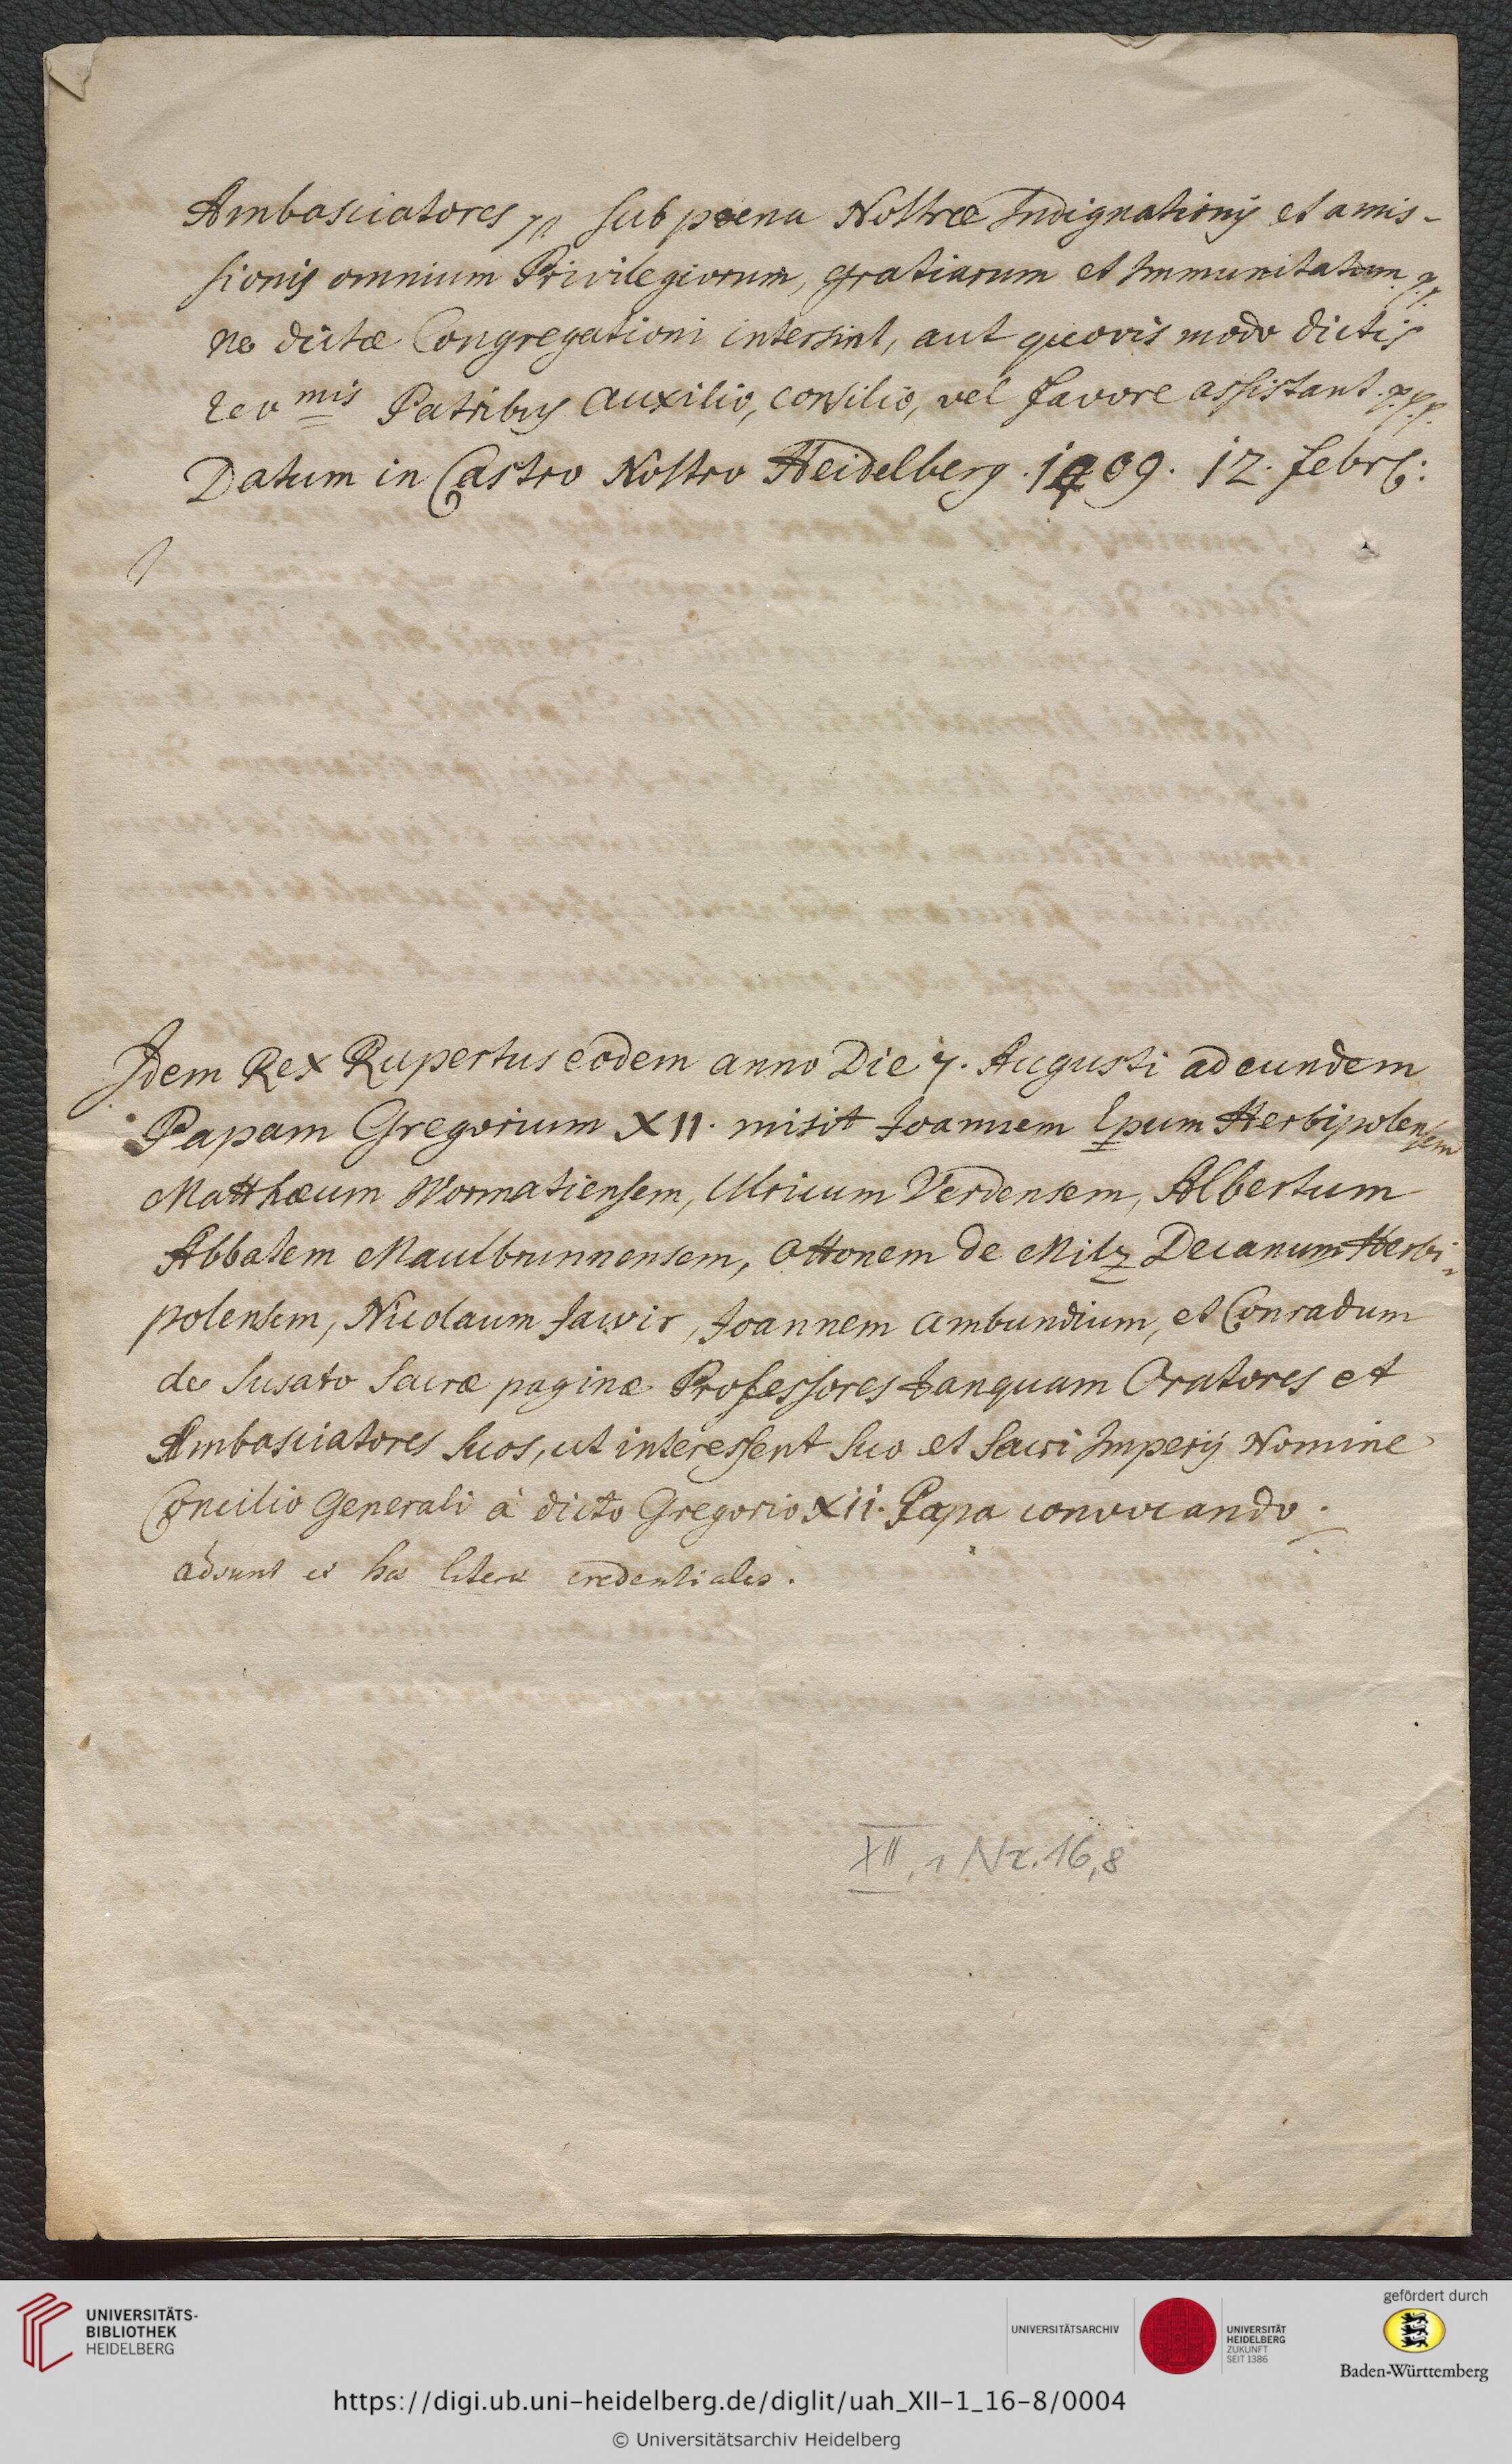 Ambasciatores pp sub poena Nostræ Indignationis et amis-
sionis omnium Privilegiorum, gratiarum et Immunitatum. p.p.
ne dictæ Congregationi intersint, aut quovis modo dictis
rev mis Patribus auxilio, consilio, vel favore assistant. p.p.p.
Datum in Castro Nostro Heidelberg. 1409. 12. febr:
Idem Rex Rupertus eodem anno Die 7. Augusti ad eundem
Papam Gregorium XII. misit Joannem Epum Herbipolensem
Matthæum Wormatiensem, Ulricum Verdensem, Albertum
Abbatem Maulbrunnensem, Ottonem de Milz Decanum Herbi-
polensem, Nicolaum Jawir, Joannem Ambundium, et Conradum
de Susato Sacræ paginæ Professores tanquam Oratores et
Ambasciatores suos, ut interessent suo et Sacri Imperij Nomine
Concilio Generali à dicto Gregorio XII. Papa convocando.
adsunt et hæ literæ credentiales.
XII, 1 Nr. 16,8
UNIVERSITÄTS-
BIBLIOTHEK
HEIDELBERG
UNIVERSITÄTSARCHIV
UNIVERSITÄT
HEIDELBERG
ZUKUNFT
SEIT 1386
gefördert durch
Baden-Württemberg
https://digi.ub.uni-heidelberg.de/diglit/uah_XII-1_16-8/0004
© Universitätsarchiv Heidelberg